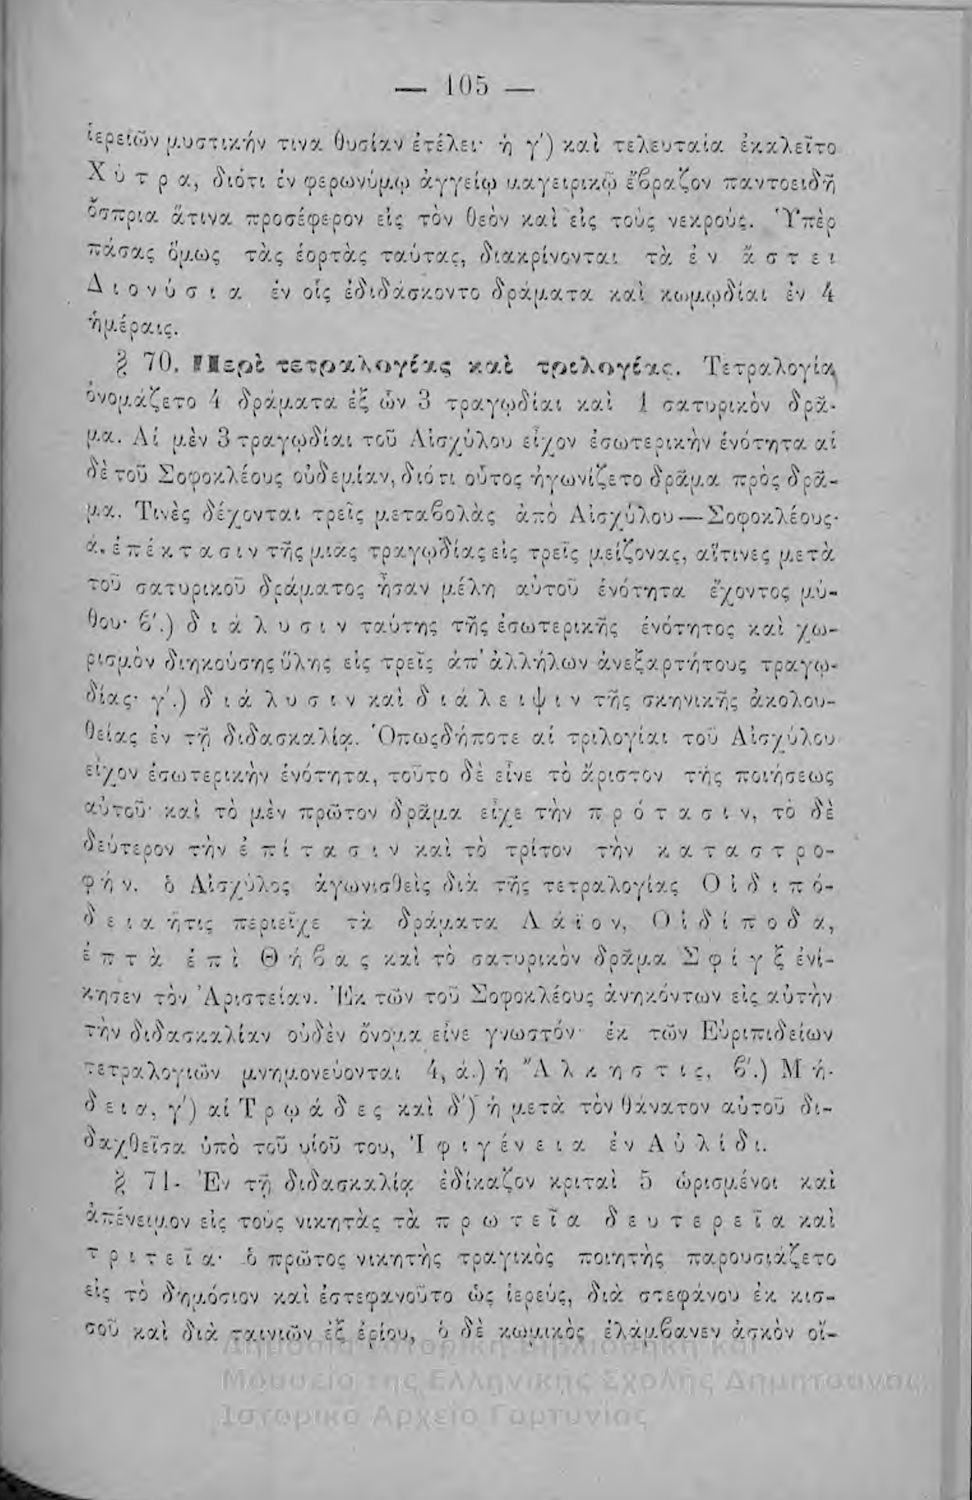 — 105 —
ἱερειῶν μυστικήν τινα θυσίαν ἐτέλει· ἡ γ΄) καὶ τελευταία ἐκαλεῖτο
Χύτρα, διότι ἐν φερωνύμῳ ἀγγείῳ μαγειρικῷ ἔβραζον παντοειδῆ
ὄσπρια ἅτινα προσέφερον εἰς τὸν θεὸν καὶ εἰς τοὺς νεκρούς. Ὑπὲρ
πάσας ὅμως τὰς ἑορτὰς ταύτας, διακρίνονται τὰ ἐν ἄστει
Διονύσια ἐν οἷς ἐδιδάσκοντο δράματα καὶ κωμῳδίαι ἐν 4
ἡμέραις.
§ 70. Περὶ τετραλογίας καὶ τριλογίας. Τετραλογία
ὀνομάζετο 4 δράματα ἐξ ὧν 3 τραγῳδίαι καὶ 1 σατυρικὸν δρᾶ-
μα. Αἱ μὲν 3 τραγῳδίαι τοῦ Αἰσχύλου εἶχον ἐσωτερικὴν ἑνότητα αἱ
δὲ τοῦ Σοφοκλέους οὐδεμίαν, διότι οὗτος ἠγωνίζετο δρᾶμα πρὸς δρᾶ-
μα. Τινὲς δέχονται τρεῖς μεταβολὰς ἀπὸ Αἰσχύλου — Σοφοκλέους·
ά. ἐπέκτασιν τῆς μιᾶς τραγῳδίας εἰς τρεῖς μείζονας, αἵτινες μετὰ
τοῦ σατυρικοῦ δράματος ἦσαν μέλη αὐτοῦ ἑνότητα ἔχοντος μύ-
θου· β΄.) διάλυσιν ταύτης τῆς ἐσωτερικῆς ἑνότητος καὶ χω-
ρισμὸν διηκούσης ὕλης εἰς τρεῖς ἀπ' ἀλλήλων ἀνεξαρτήτους τραγῳ-
δίας· γ΄.) διάλυσιν καὶ διάλειψιν τῆς σκηνικῆς ἀκολου-
θείας ἐν τῇ διδασκαλίᾳ. Ὁπωςδήποτε αἱ τριλογίαι τοῦ Αἰσχύλου
εἶχον ἐσωτερικὴν ἑνότητα, τοῦτο δὲ εἶνε τὸ ἄριστον τῆς ποιήσεως
αὐτοῦ· καὶ τὸ μὲν πρῶτον δρᾶμα εἶχε τὴν πρότασιν, τὸ δὲ
δεύτερον τὴν ἐπίτασιν καὶ τὸ τρίτον τὴν καταστρο-
φήν. ὁ Αἰσχύλος ἀγωνισθεὶς διὰ τῆς τετραλογίας Οἰδιπό-
δεια ἥτις περιεῖχε τὰ δράματα Λάϊον, Οἰδίποδα,
ἑπτὰ ἐπὶ Θήβας καὶ τὸ σατυρικὸν δρᾶμα Σφίγξ ἐνί-
κησεν τὸν Ἀριστείαν. Ἐκ τῶν τοῦ Σοφοκλέους ἀνηκόντων εἰς αὐτὴν
τὴν διδασκαλίαν οὐδὲν ὄνομα εἶνε γνωστόν· ἐκ τῶν Εὐριπιδείων
τετραλογιῶν μνημονεύονται 4, ά.) ἡ Ἄλκηστις, β΄.) Μή-
δεια, γ΄) αἱ Τρῳάδες καὶ δ΄) ἡ μετὰ τὸν θάνατον αὐτοῦ δι-
δαχθεῖσα ὑπὸ τοῦ υἱοῦ του, Ἰφιγένεια ἐν Αὐλίδι.
§ 71. Ἐν τῇ διδασκαλίᾳ ἐδίκαζον κριταὶ 5 ὡρισμένοι καὶ
ἀπένειμον εἰς τοὺς νικητὰς τὰ πρωτεῖα δευτερεῖα καὶ
τριτεῖα· ὁ πρῶτος νικητὴς τραγικὸς ποιητὴς παρουσιάζετο
εἰς τὸ δημόσιον καὶ ἐστεφανοῦτο ὡς ἱερεύς, διὰ στεφάνου ἐκ κισ-
σοῦ καὶ διὰ ταινιῶν ἐξ ἐρίου, ὁ δὲ κωμικὸς ἐλάμβανεν ἀσκὸν οἴ-
Δημόσια Ιστορική Βιβλιοθήκη και
Μουσείο της Ελληνικής Σχολής Δημητσάνας
Ιστορικό Αρχείο Γορτυνίας